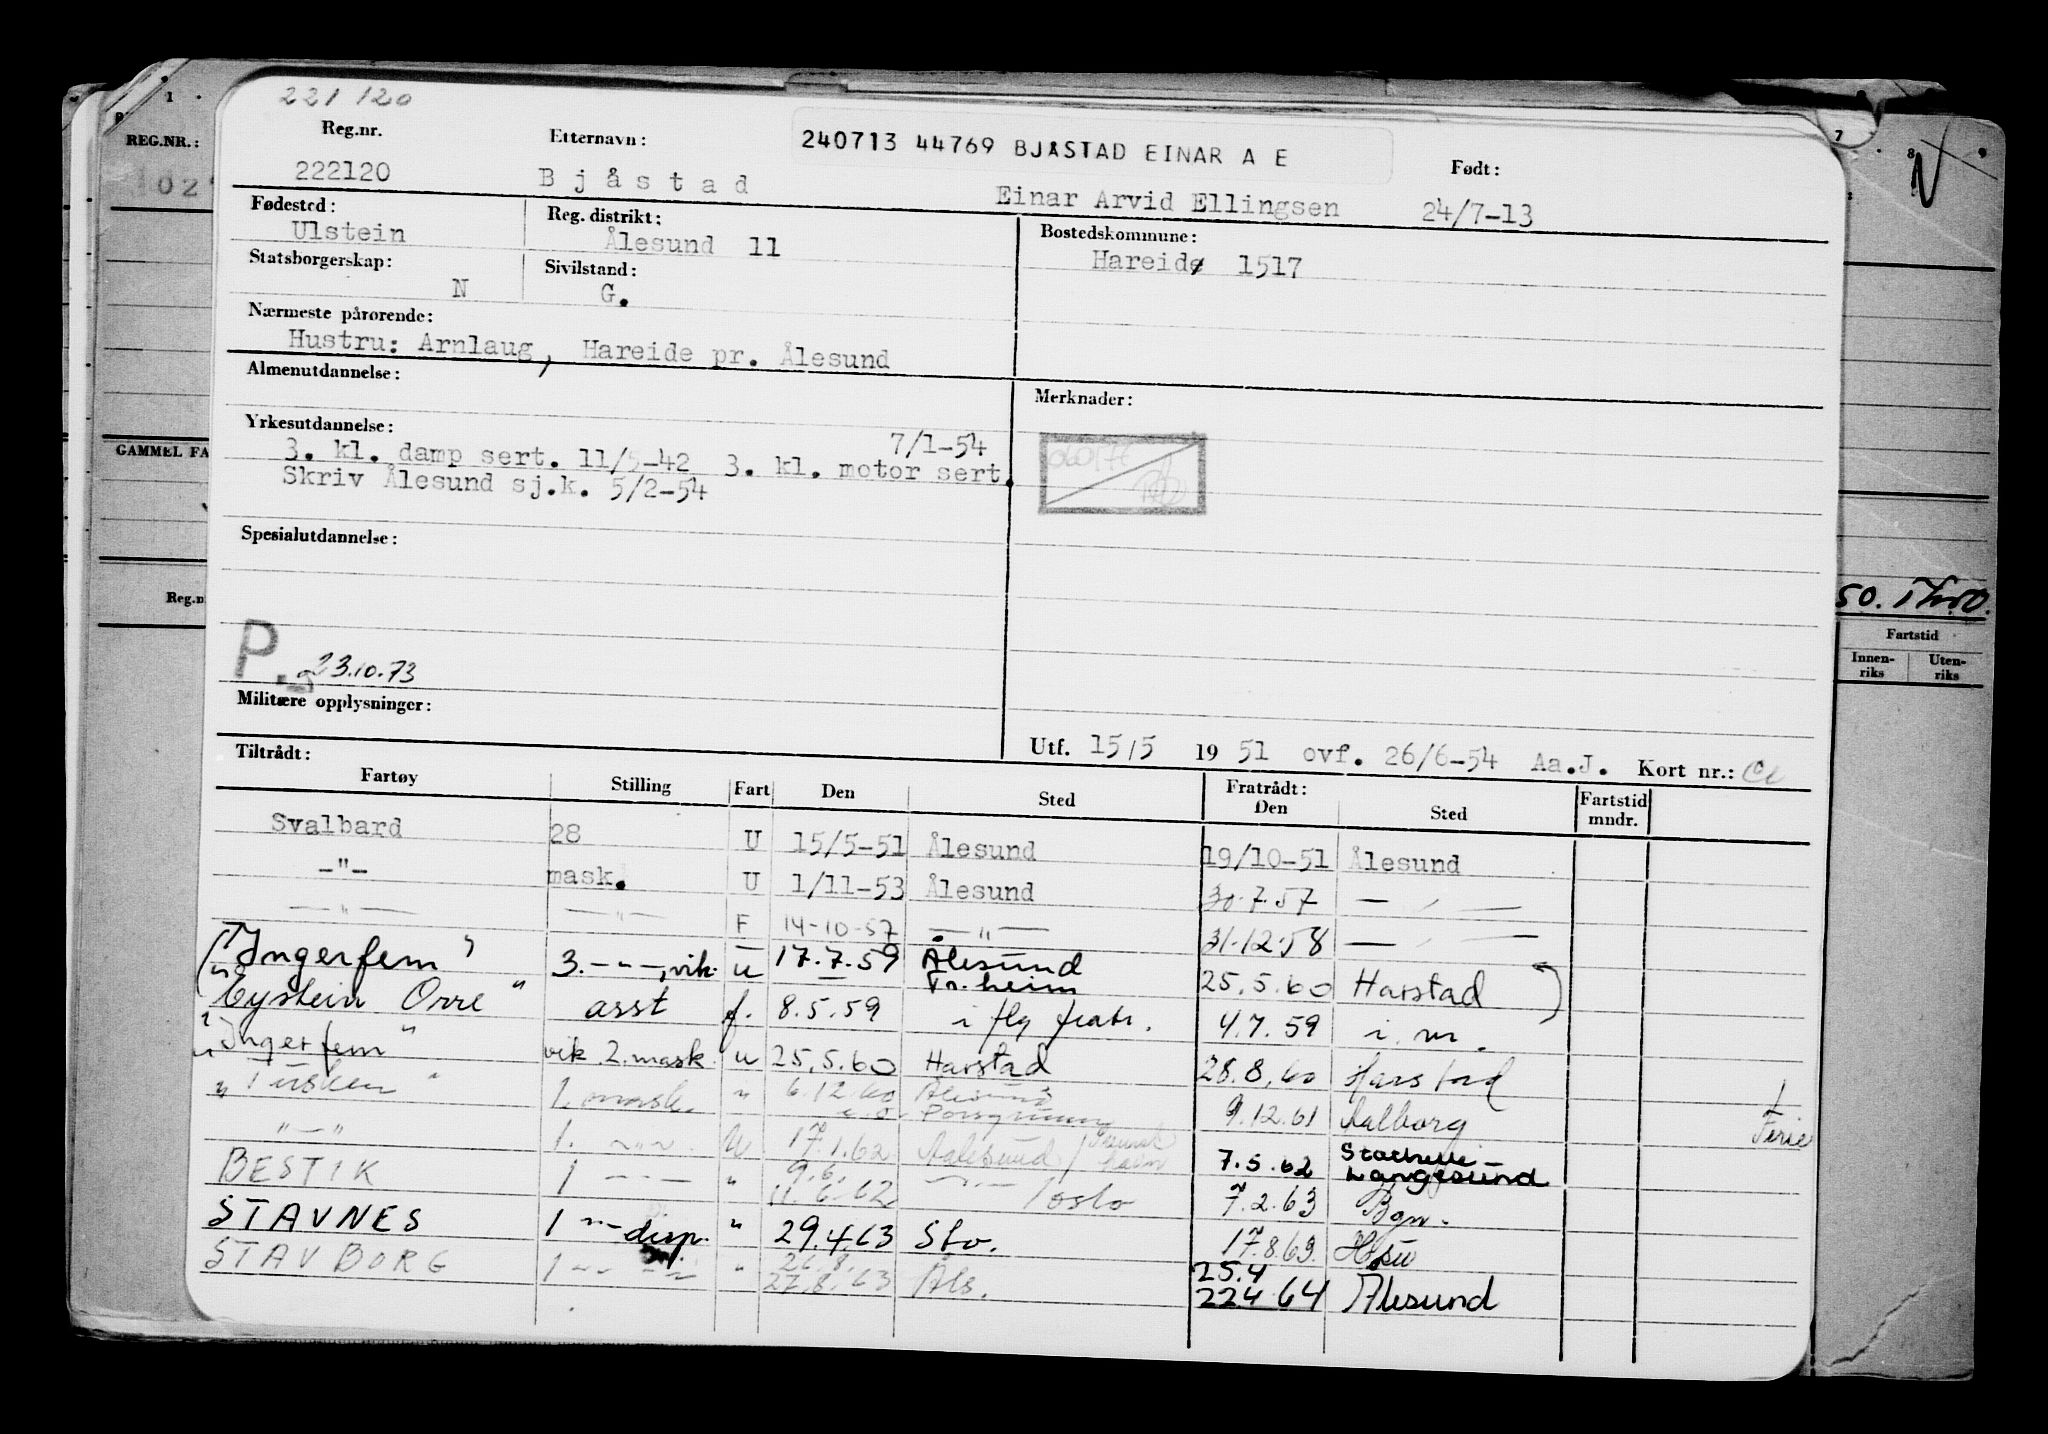 221 120
1 7 8 9
REG.NR.:
Reg.nr. Etternavn: 240713 44769 BJÅSTAD EINAR A E Født:
222120 Bjåstad Einar Arvid Ellingsen 24/7-13
Fødested: Reg. distrikt: Bostedskommune:
Ulstein Ålesund 11 Hareide 1517
Statsborgerskap: Sivilstand:
N G.
Nærmeste pårørende:
Hustru: Arnlaug, Hareide pr. Ålesund
Almenutdannelse: Merknader:
Yrkesutdannelse: 7/1-54
3. kl. damp sert. 11/5-42 3. kl. motor sert.
Skriv Ålesund sj.k. 5/2-54
GAMMEL FA
Spesialutdannelse:
Reg.n
50.
Fartstid
Innen-riks Uten-riks
P. 23.10.73
Militære opplysninger:
Utf. 15/5 1951 ovf. 26/6-54 Aa.J. Kort nr.:
Tiltrådt: Fratrådt:
Fartøy Stilling Fart Den Sted Den Sted Fartstid mndr.
Svalbard 28 U 15/5-51 Ålesund 19/10-51 Ålesund
-"- mask. U 1/11-53 Ålesund 30.7.57 — " —
— " — — " — F 14-10-57 — " — 31.12.58 — " —
"Ingerfem" 3. - " -, vik. u 17.7.59 Ålesund Tr.heim 25.5.60 Harstad
"Eystein Orre" asst f. 8.5.59 i flg fratr. 4.7.59 i. m.
"Ingerfem" vik. 2. mask. u 25.5.60 Harstad 28.8.60 Harstad
"Tusken" 1. mask. " 6.12.60 Ålesund Porsgrunn 9.12.61 Aalborg Ferie
" — " 1. - " - U 17.1.62 Aalesund / 7.5.62 Stathelle - Langesund
BESTIK 1 - " - " 9.6. 11.6.62 - " - / oslo 7.2.63 Bgn.
STAVNES 1 - " - disp. " 29.4.63 Sto. 17.8.63
STAVBORG 1 - " - " 26.8. 27.8.63 Åls. 25.4 22.4.64 Ålesund